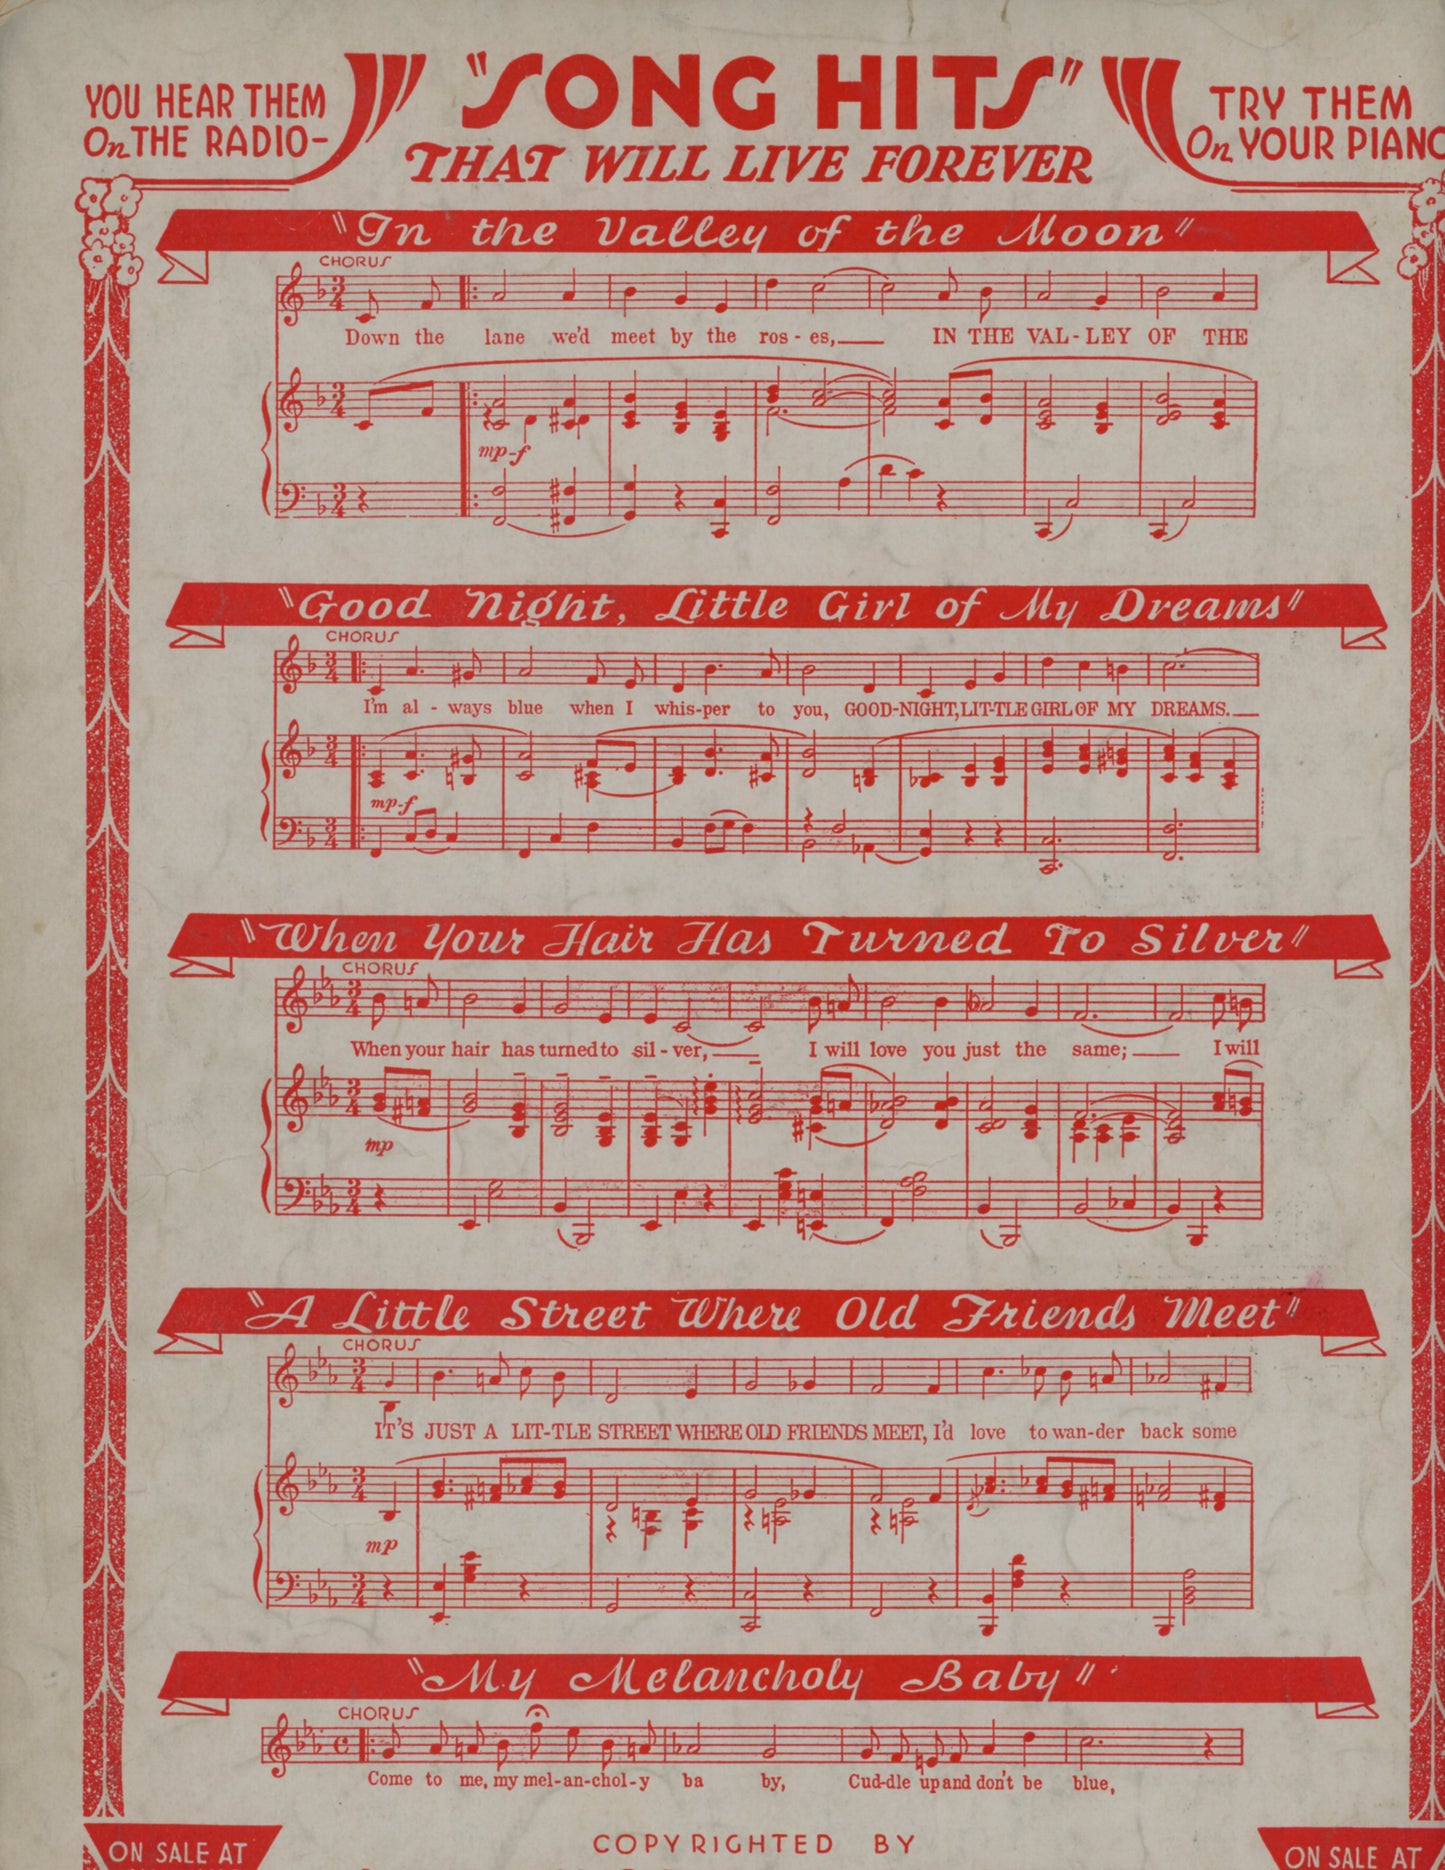 YOU HEAR THEM
On THE RADIO-
"SONG HITS"
THAT WILL LIVE FOREVER
TRY THEM
On YOUR PIANO
"In the Valley of the Moon"
CHORUS
Down the lane we'd meet by the ros - es, IN THE VAL - LEY OF THE
mp-f
"Good Night, Little Girl of My Dreams"
CHORUS
I'm al - ways blue when I whis-per to you, GOOD-NIGHT, LIT-TLE GIRL OF MY DREAMS.
mp-f
"When Your Hair Has Turned To Silver"
CHORUS
When your hair has turned to sil - ver, I will love you just the same; I will
mp
"A Little Street Where Old Friends Meet"
CHORUS
IT'S JUST A LIT-TLE STREET WHERE OLD FRIENDS MEET, I'd love to wan-der back some
mp
"My Melancholy Baby"
CHORUS
Come to me, my mel-an-chol-y ba by, Cud-dle up and don't be blue,
ON SALE AT
COPYRIGHTED BY
ON SALE AT